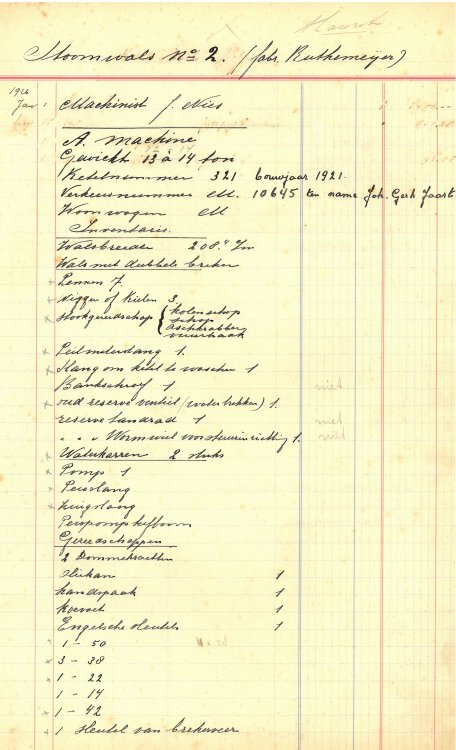 Stoomwals No 2. (fabr. Ruthemeyer)
Jan 1 Machinist J. Nies
A. Machine
Gewicht 13 à 14 ton
Ketelnummer 321 bouwjaar 1921.
Verkeersnummer M. 10645 ten name Joh. Gerh Jaart
Woonwagen M
Inventaris.
Walsbreedte 208.
Wals met dubbele breker
Pennen 7.
of Kielen 3.
Stookgereedschap { kolenschop
schop
aschkrabber
vuurhaak
Peilmeterslang 1.
Slang om ketel te wasschen 1
Bankschroef 1 niet
oud reserve ventiel (watertrekker) 1.
reserve tandrad 1 niet
" " " Wormwiel voor stuurinrichting 1. niet
Waterkarren 2 stuks
Pomp 1
Persslang
Zuigslang
Perspomp hefboom
Gereedschappen
2 Dommekrachten
Oliekan 1
handspaak 1
koevoet 1
Engelsche sleutels 1
1 - 50
3 - 38
1 - 22
1 - 14
1 - 42
1 Sleutel van brekerveer